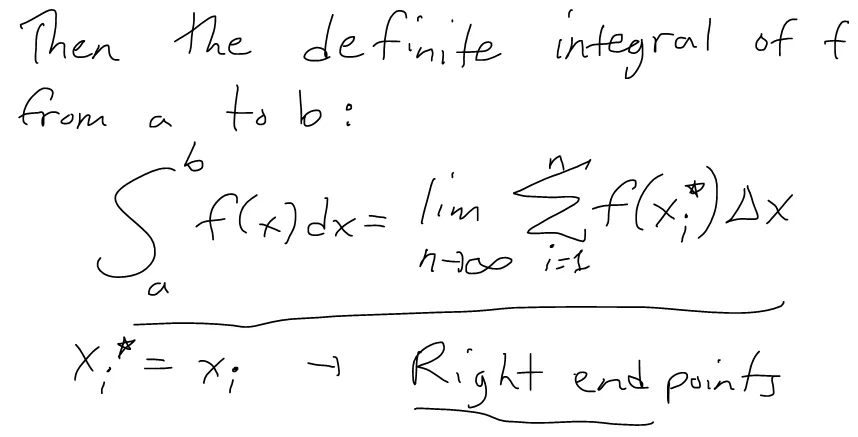 Then the definite integral of f
from a to b :
∫_a^b f(x) dx = lim_{n→∞} ∑_{i=1}^{n} f(x_i^*) Δx
x_i^* = x_i → Right endpoints